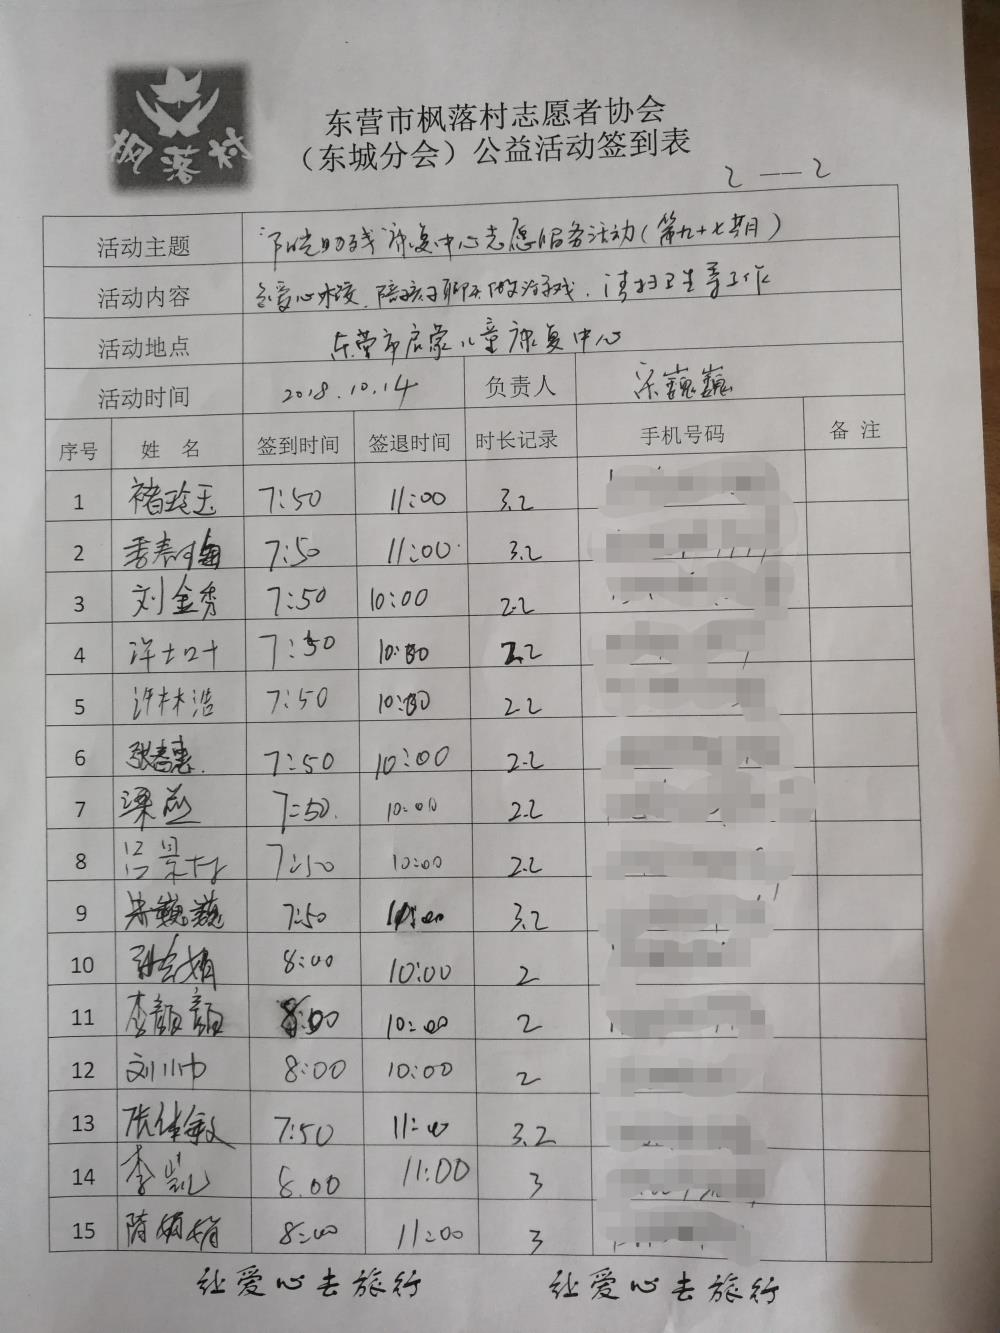 枫落村
东营市枫落村志愿者协会
（东城分会）公益活动签到表
2——2
活动主题 康复中心志愿服务活动(第九十七期)
活动内容 爱心 陪孩子聊天做游戏、清扫卫生等工作
活动地点 东营市启蒙儿童康复中心
活动时间 2018.10.14 负责人 宋巍巍
序号 姓 名 签到时间 签退时间 时长记录 手机号码 备 注
1 褚玲玉 7:50 11:00 3.2
2 7:50 11:00 3.2
3 刘金秀 7:50 10:00 2.2
4 7:50 10:00 2.2
5 许林浩 7:50 10:00 2.2
6 张春惠 7:50 10:00 2.2
7 梁燕 7:50 10:00 2.2
8 吕景 7:50 10:00 2.2
9 宋巍巍 7:50 11:00 3.2
10 娟 8:00 10:00 2
11 李颜颜 8:00 10:00 2
12 刘小巾 8:00 10:00 2
13 敏 7:50 11:00 3.2
14 李凯 8.00 11:00 3
15 隋娟娟 8:00 11:00 3
让爱心去旅行 让爱心去旅行